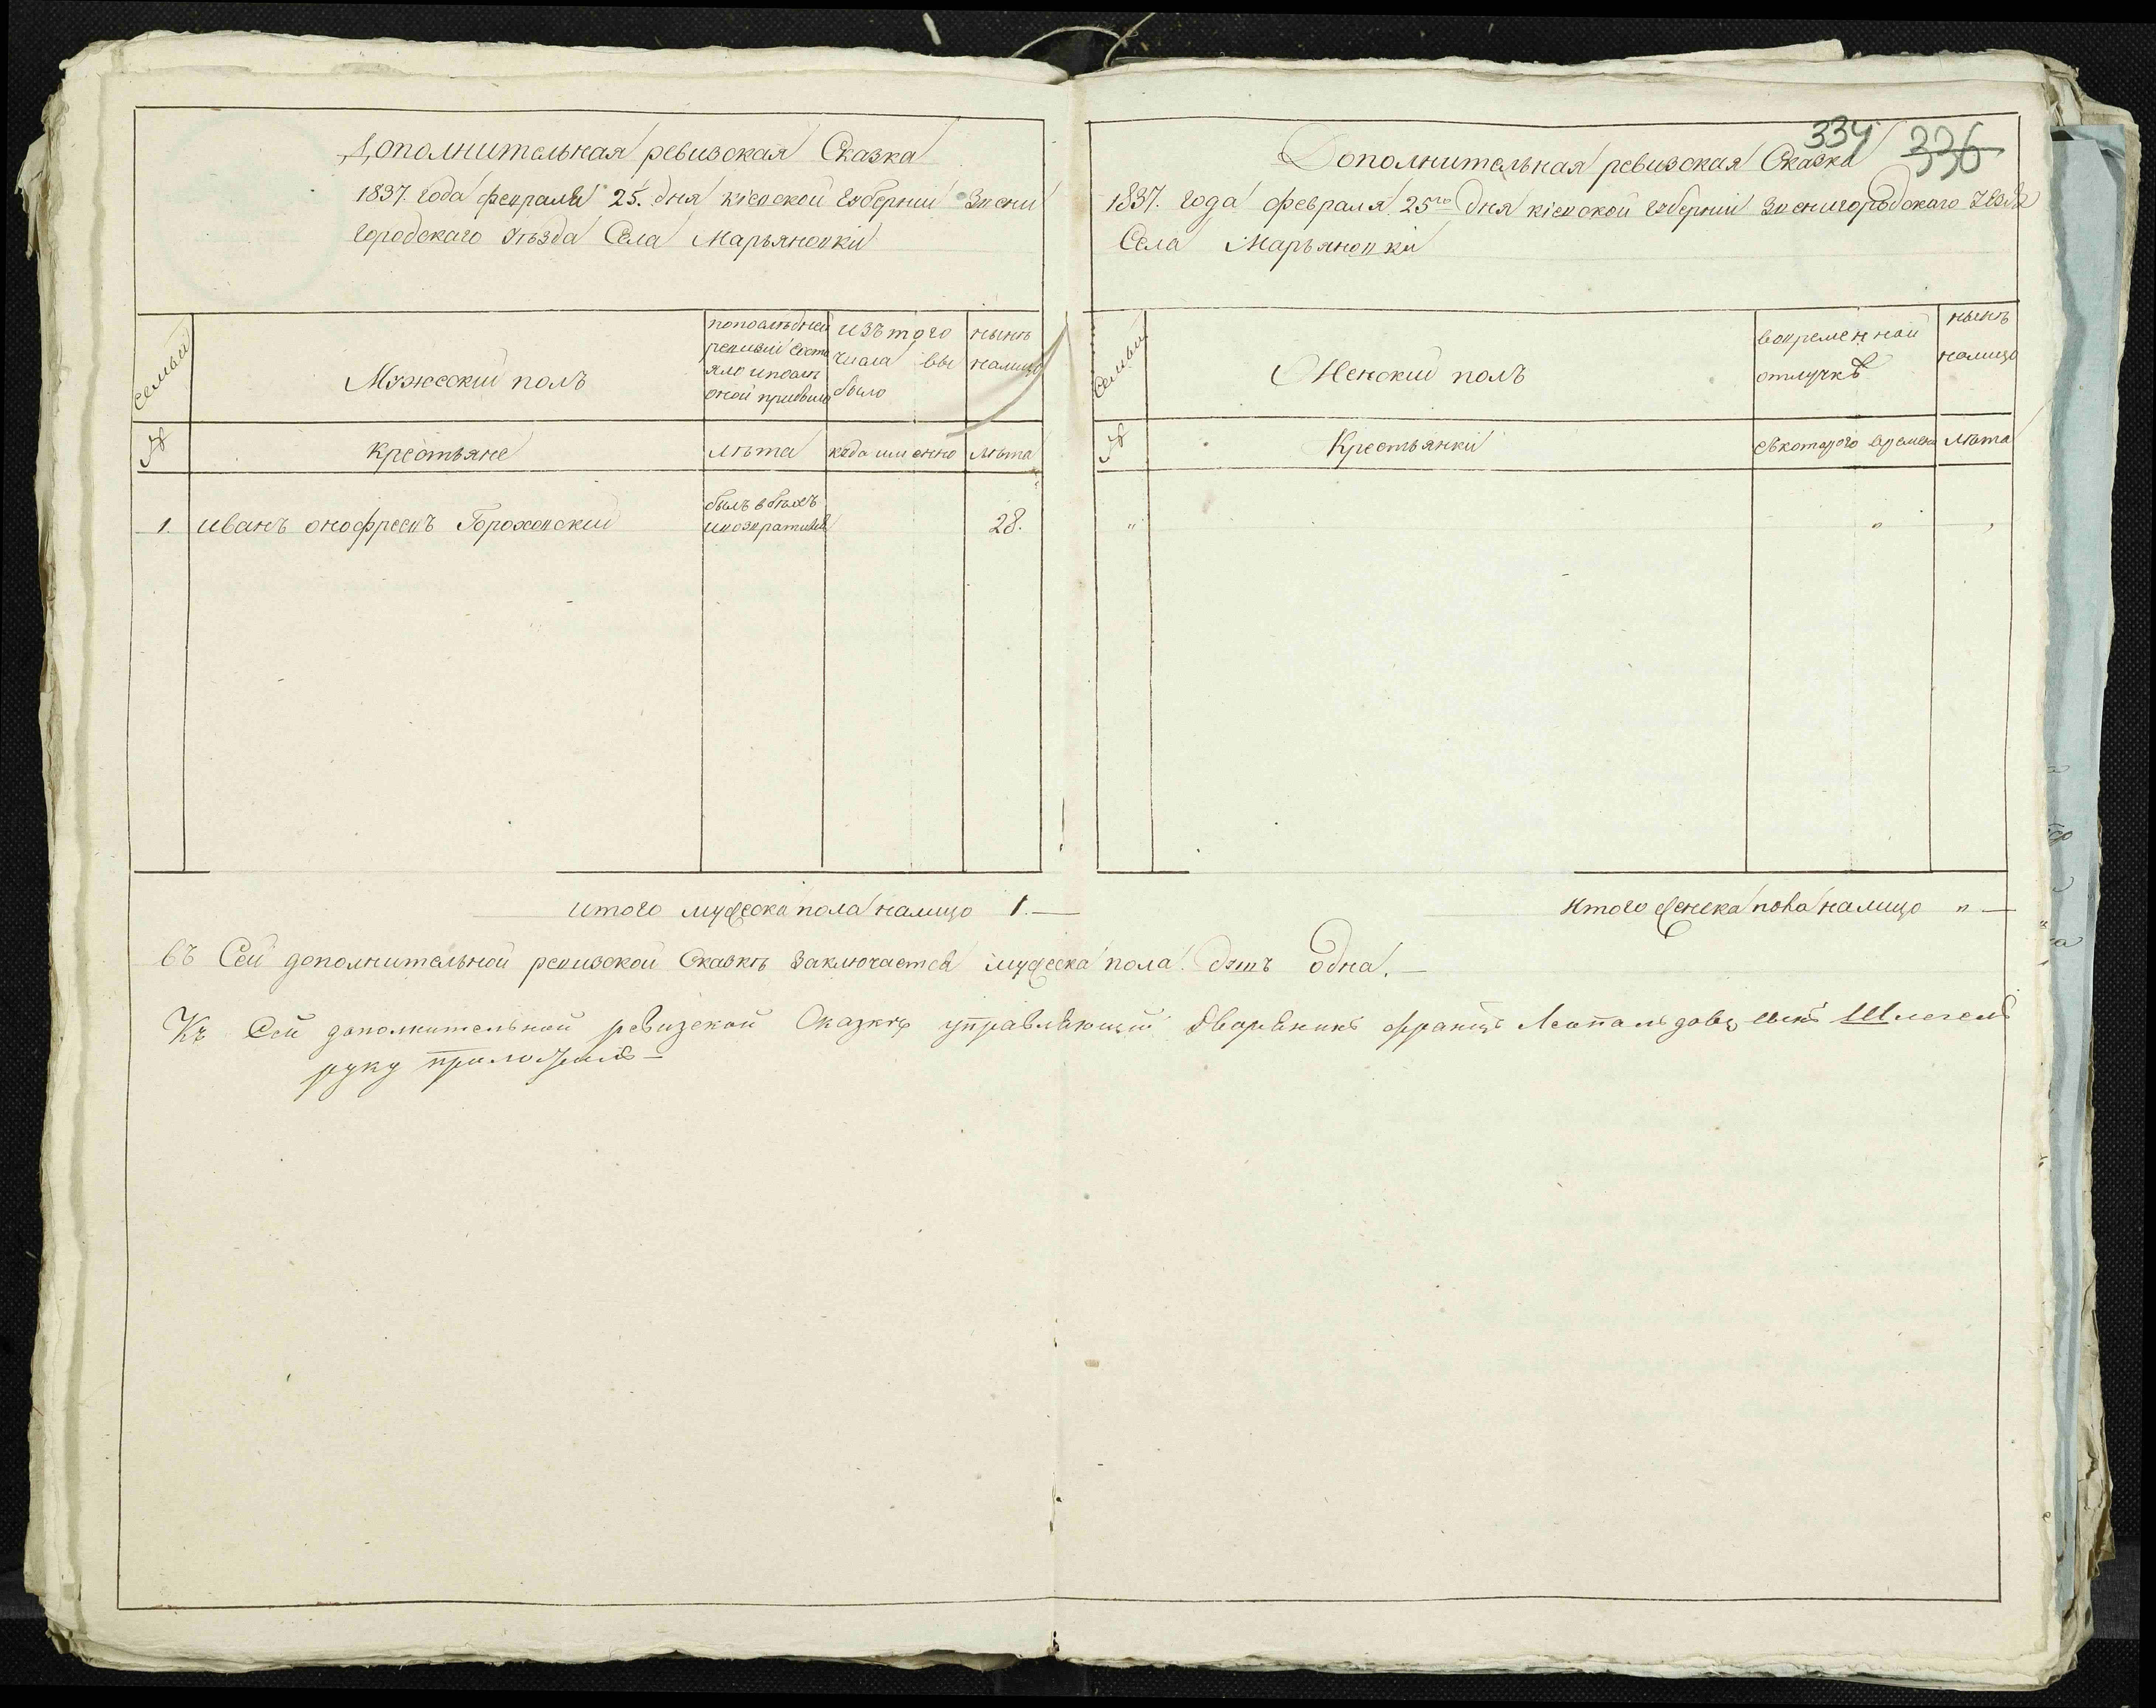 Дополнительная ревизская Сказка
1837. года февраля 25. дня кіевской губерніи Звени
городскаго уѣзда Села Марьяновки
Семьи
Мужеский полъ
попослѣдней
ревизіи состо
яло ипослѣ
оной прибыло
изъ того
числа вы
было
нынѣ
налицо
№
Крестьяне
лѣта
когда именно
лѣта
1.
иванъ онофреевъ Гороховский
былъ в бѣгахъ
ивозвратился
28.
итого мужеска пола налицо 1.—
334 336
Дополнительная ревизская Сказка
1837. года февраля 25го дня кіевской губерніи Звенигородскаго уѣзда
Села Марьяновки
Семьи
Женский полъ
вовременной
отлучкѣ
нынѣ
налицо
№
Крестьянки
съкоторого времени
лѣта
" " "
Итого женска пола налицо " —
въ Сей дополнительной ревизской Сказкѣ заключается мужеска пола. душъ одна.—
Къ Сей дополнительной ревизской Сказкѣ управляющий дворянинъ францъ Леопольдовъ сынъ Шлегель
руку приложилъ —